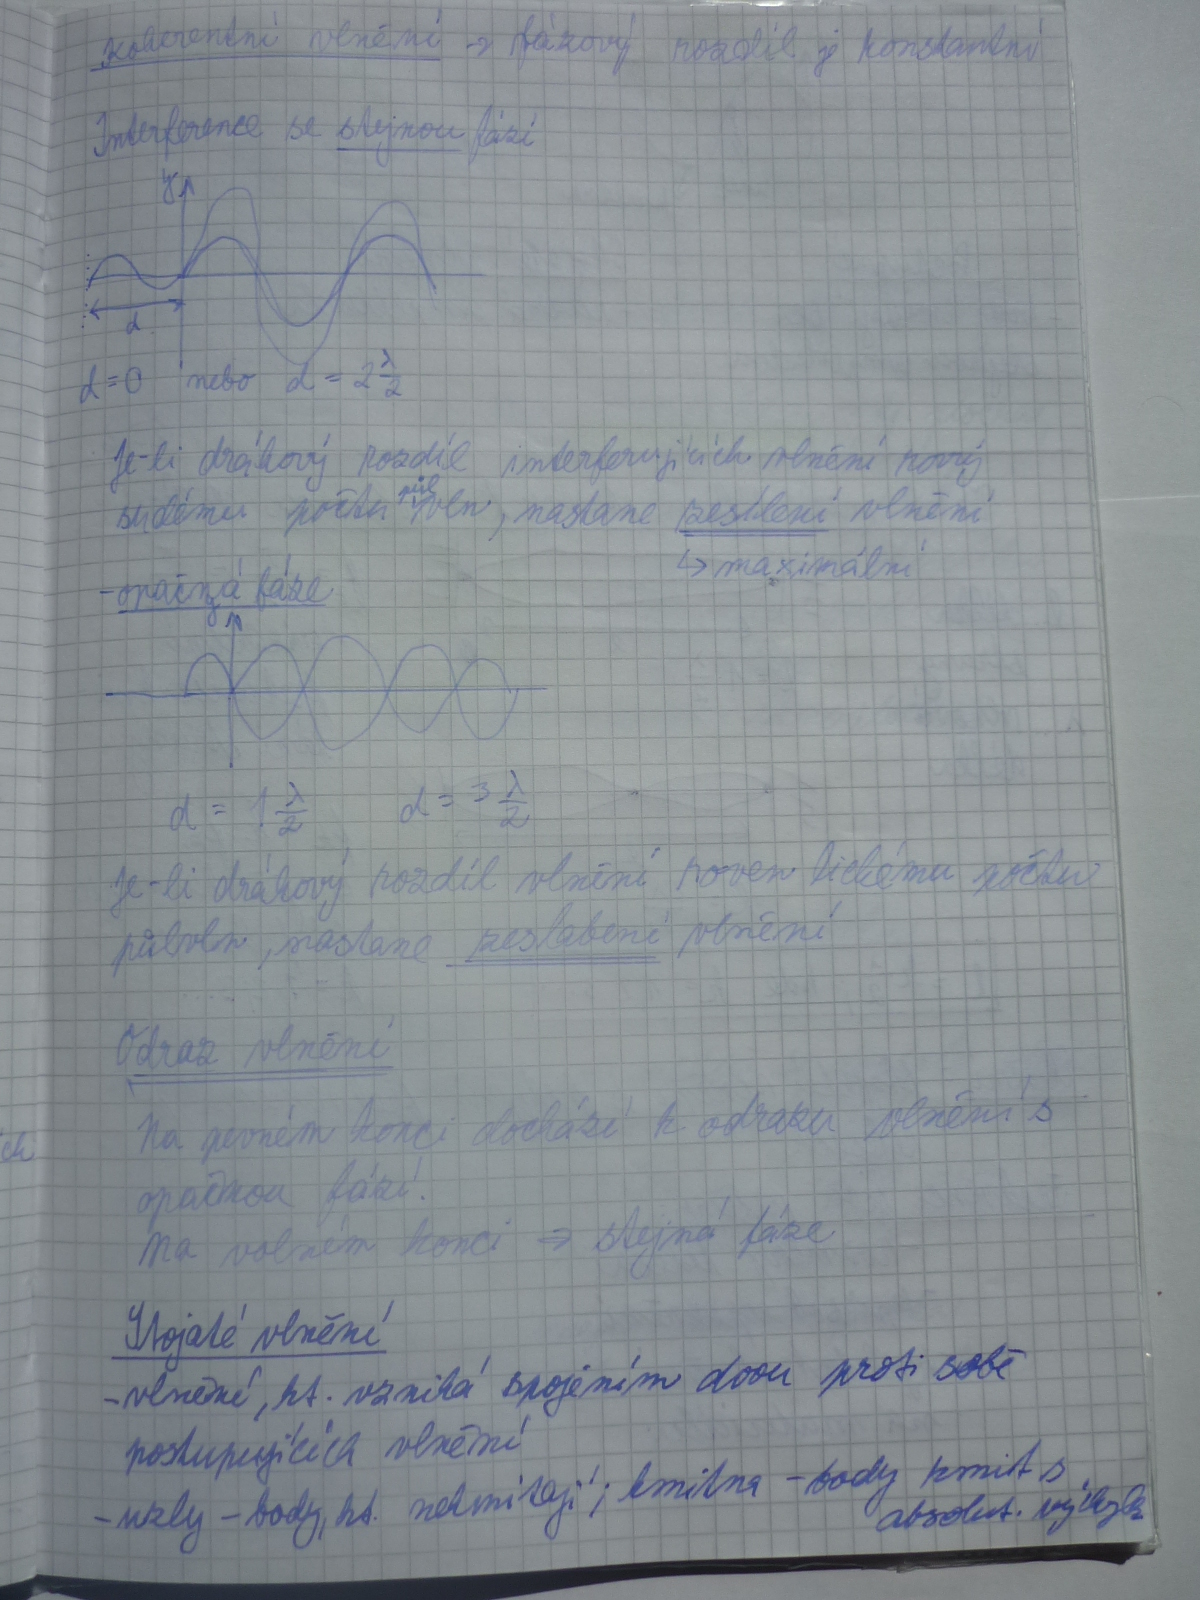 koherentní vlnění → fázový rozdíl je konstantní
Interference se stejnou fází
y
d
d = 0 nebo d = 2 λ/2
Je-li dráhový rozdíl interferujících vlnění rovný
sudému počtu půlvln, nastane zesílení vlnění
↳ maximální
- opačná fáze
d = 1 λ/2 d = 3 λ/2
Je-li dráhový rozdíl vlnění roven lichému počtu
půlvln, nastane zeslabení vlnění
Odraz vlnění
Na pevném konci dochází k odrazu vlnění s
opačnou fází.
Na volném konci ⇒ stejná fáze
Stojaté vlnění
- vlnění, kt. vzniká spojením dvou proti sobě
postupujících vlnění
- uzly - body, kt. nekmitají; kmitna - body kmit s
absolut. výchylk